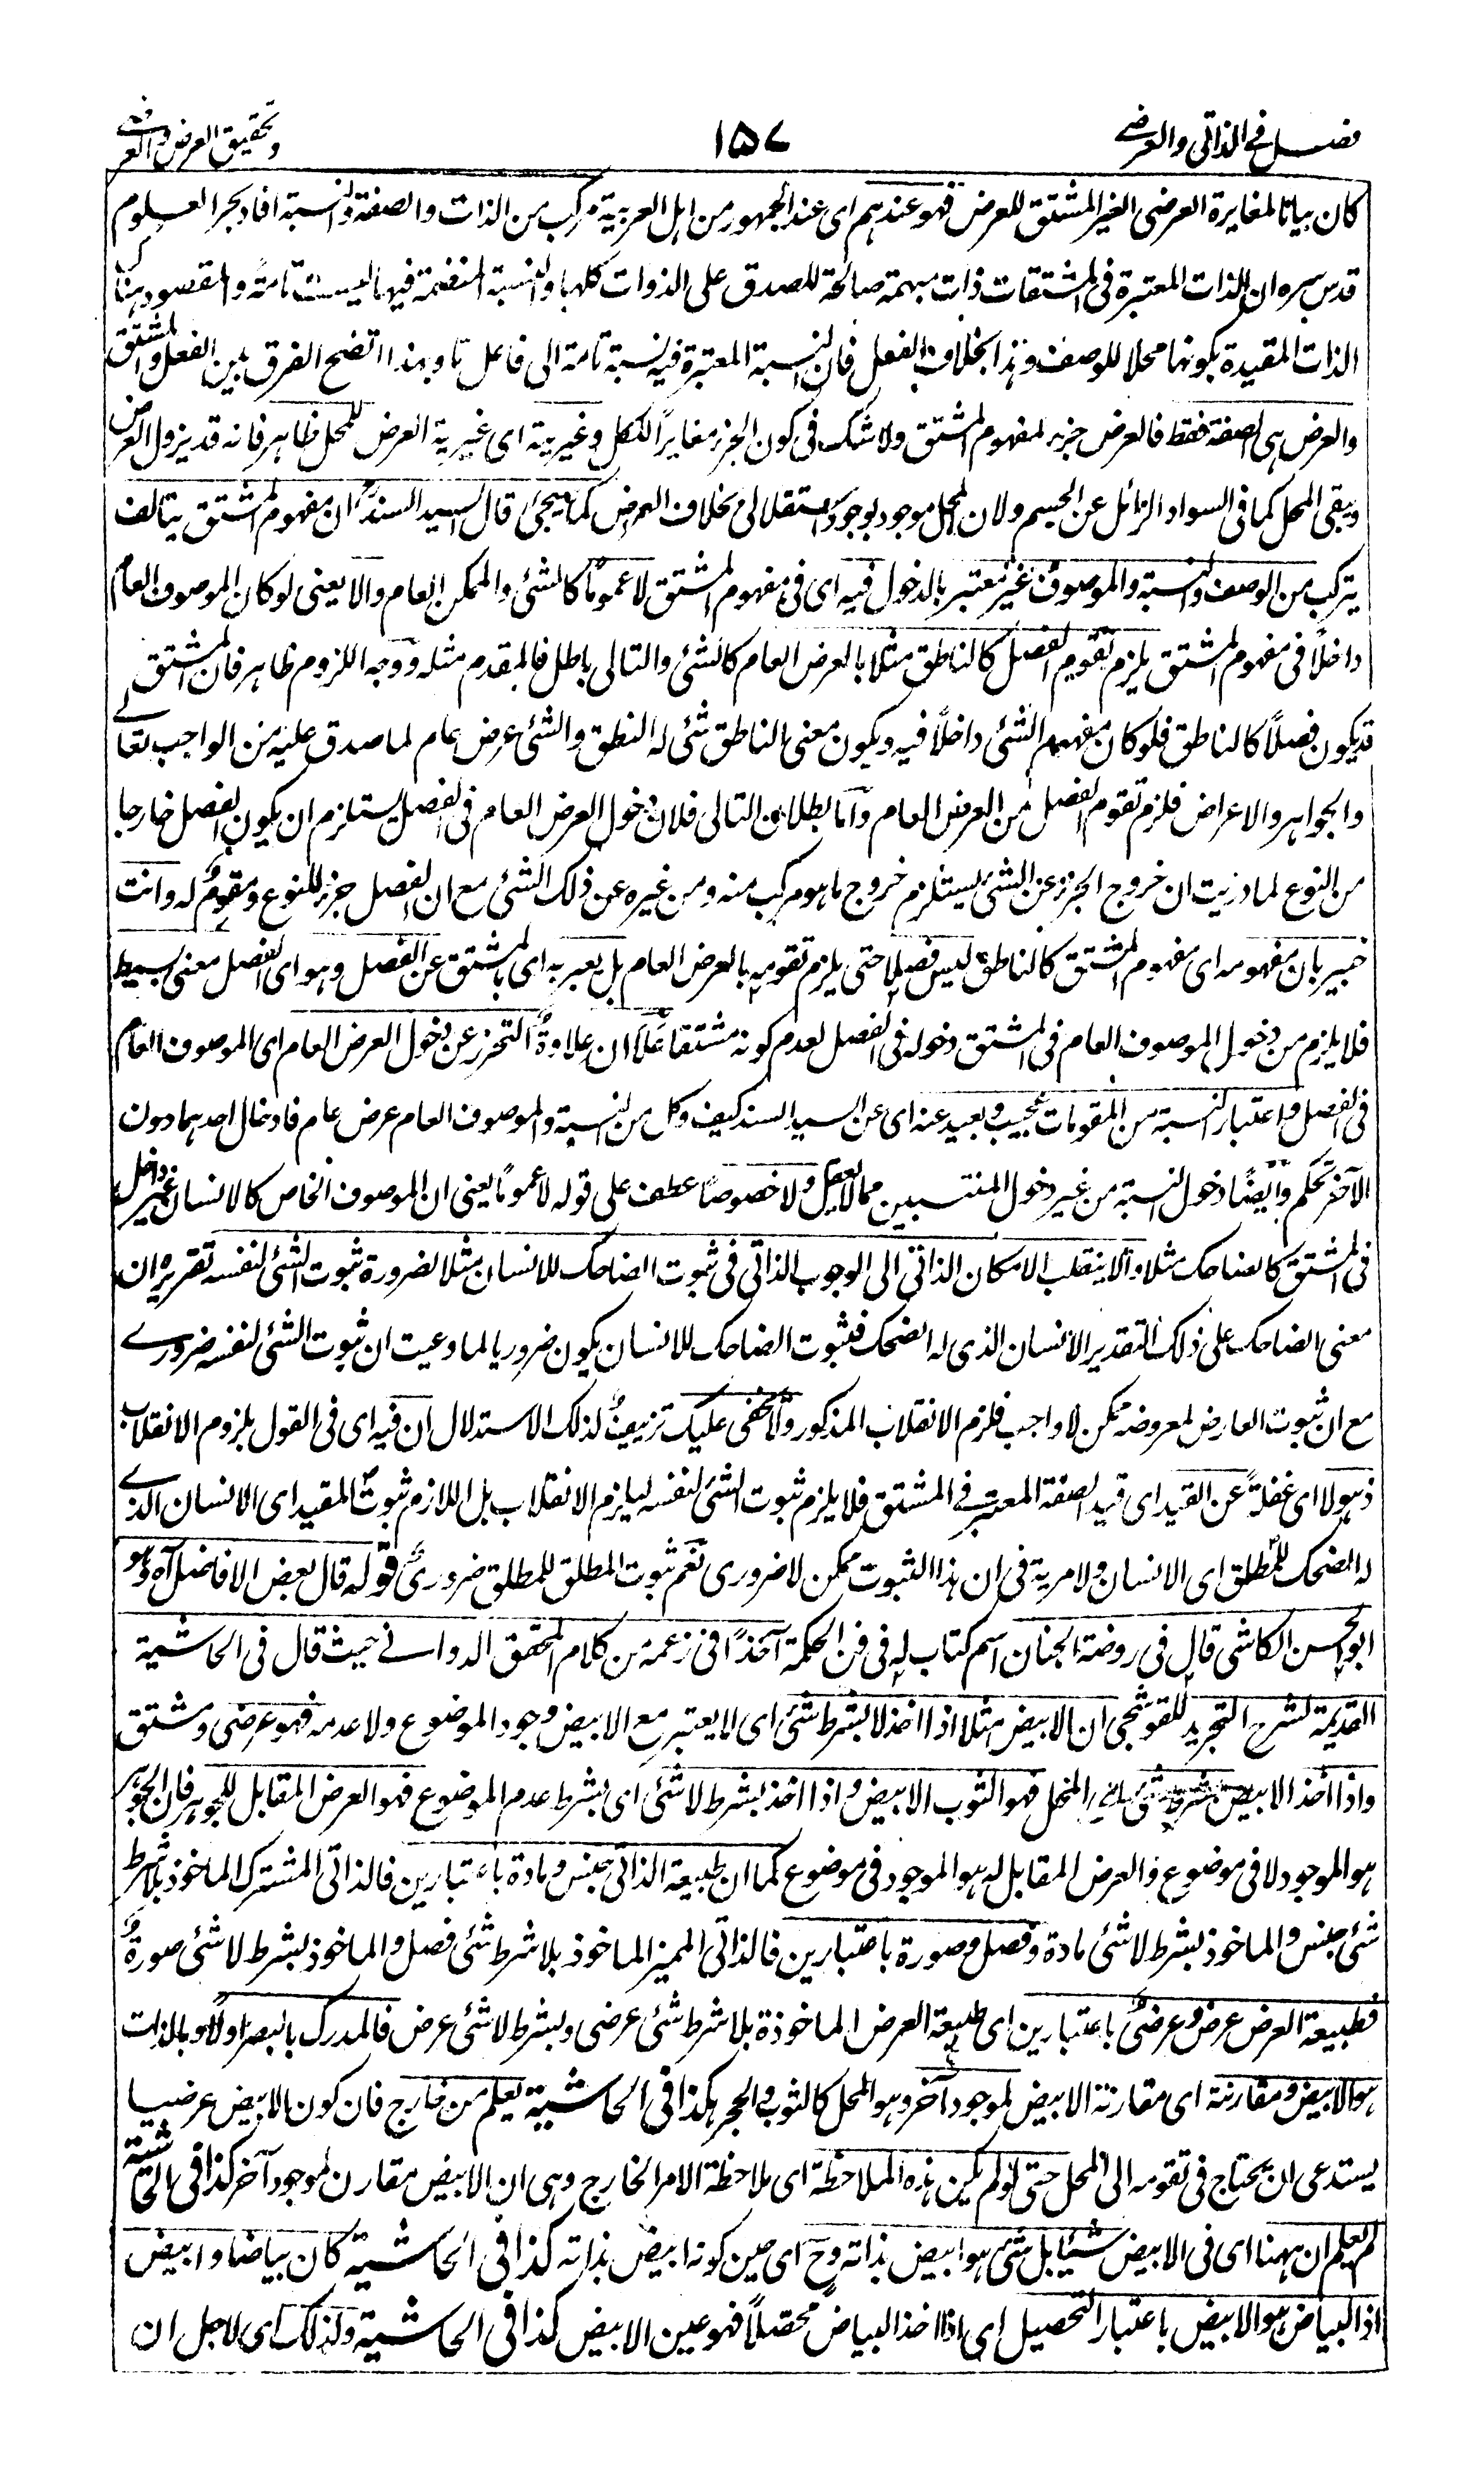 فصل في الذاتي والعرضي
١٥٧
وتحقيق العرض والعرضي
كان بيانا لمغايرة العرضي الغير المشتق للعرض فهو عندهم اى عند الجمهور من اهل العربية مركب من الذات والصفة والنسبة افاد بحر العلوم
قدس سره ان الذات المعتبرة فى المشتقات ذات مبهمة صالحة للصدق على الذوات كلها والنسبة المنضمة فيها ليست تامة والمقصود هنا
الذات المقيدة بكونها محلا للوصف وهذا بخلاف الفعل فان النسبة المعتبرة فيه نسبة تامة الى فاعل ما وبهذا اتضح الفرق بين الفعل والمشتق
والعرض هى الصفة فقط فالعرض جزء لمفهوم المشتق ولا شك فى كون الجزء مغايراً للكل وغيرية اى غيرية العرض للمحل ظاهر فانه قد يزول العرض
ويبقى المحل كما فى السواد الزائل عن الجسم ولان المحل موجود بوجود استقلالى بخلاف العرض كما سيجئ قال السيد السند ان مفهوم المشتق يتالف
يتركب من الوصف والنسبة والموصوف غير معتبر بالدخول فيه اى فى مفهوم المشتق لا عموماً كالشئ والممكن العام والا يعنى لو كان الموصوف العام
داخلاً فى مفهوم المشتق يلزم تقويم الفصل كالناطق مثلا بالعرض العام كالشئ والتالى باطل فالمقدم مثله ووجه اللزوم ظاهر فان المشتق
قد يكون فصلاً كالناطق فلو كان مفهوم الشئ داخلاً فيه ويكون معنى الناطق شئ له النطق والشئ عرض عام لما صدق عليه من الواجب تعالے
والجواهر والاعراض فلزم تقوم الفصل من العرض العام واما بطلان التالى فلان دخول العرض العام فى الفصل يستلزم ان يكون الفصل خارجا
من النوع لما دريت ان خروج الجزء عن الشئ يستلزم خروج ما هو مركب منه ومن غيره عن ذلك الشئ مع ان الفصل جزء للنوع ومقوم له وانت
خبير بان مفهومه اى مفهوم المشتق كالناطق ليس فصلا حتى يلزم تقومه بالعرض العام بل يعبر به اى بالمشتق عن الفصل وهو اى الفصل معنى بسيط
فلا يلزم من دخول الموصوف العام فى المشتق دخوله فى الفصل لعدم كونه مشتقا علا ان علاوة التحرز عن دخول العرض العام اى الموصوف العام
فى الفصل واعتبار النسبة من المقومات عجيب وبعيد عنه اى عن السيد السند كيف وكل من النسبة والموصوف العام عرض عام فادخال احدهما دون
الآخر تحكم وايضاً دخول النسبة من غير دخول المنتسبين مما لا يعقل ولا خصوصاً عطف على قوله لا عموماً يعنى ان الموصوف الخاص كالانسان غير داخل
فى المشتق كالضاحك مثلا والا ينقلب الامكان الذاتى الى الوجوب الذاتى فى ثبوت الضاحك للانسان مثلا لضرورة ثبوت الشئ لنفسه تقريره ان
معنى الضاحك على ذلك التقدير الانسان الذى له الضحك فثبوت الضاحك للانسان يكون ضروريا لما وعيت ان ثبوت الشئ لنفسه ضرورے
مع ان ثبوت العارض لمعروضه ممكن لا واجب فلزم الانقلاب المذكور ولا يخفى عليك تزييف لذلك الاستدلال ان فيه اى فى القول بلزوم الانقلاب
ذهولا اى غفلة عن القيد اى قيد الصفة المعتبر فے المشتق فلا يلزم ثبوت الشئ لنفسه ليلزم الانقلاب بل اللازم ثبوت المقيد اى الانسان الذے
له الضحك للمطلق اى الانسان ولا مرية فى ان هذا الثبوت ممكن لا ضرورى نعم ثبوت المطلق للمطلق ضرورى قوله قال بعض الافاضل آه وهو
ابو الحسن الكاشى قال فى روضة الجنان اسم كتاب له فى فن الحكمة آخذاً فى زعمه من كلام المحقق الدوانے حيث قال فى الحاشية
القديمة لشرح التجريد للقوشجى ان الابيض مثلا اذا اخذ لا بشرط شئ اى لا يعتبر مع الابيض وجود الموضوع ولا عدمه فهو عرضى ومشتق
واذا اخذ الابيض بشرط شئ اى المحل فهو الثوب الابيض واذا اخذ بشرط لا شئ اى بشرط عدم الموضوع فهو العرض المقابل للجوهر فان الجوهر
هو الموجود لا فى موضوع والعرض المقابل له هو الموجود فى موضوع كما ان طبيعة الذاتى جنس ومادة باعتبارين فالذاتى المشترك الماخوذ بلا شرط
شئ جنس والماخوذ بشرط لا شئ مادة وفصل وصورة باعتبارين فالذاتى المميز الماخوذ بلا شرط شئ فصل والماخوذ بشرط لا شئ صورة
فطبيعة العرض عرض وعرضى باعتبارين اى طبيعة العرض الماخوذة بلا شرط شئ عرضى وبشرط لا شئ عرض فالمدرك بالبصر اولاً وبالذات
هو الابيض ومقارنة اى مقارنة الابيض لموجود آخر وهو المحل كالثوب والحجر هكذا فى الحاشية يعلم من خارج فان كون الابيض عرضيا
يستدعى ان يحتاج فى تقومه الى المحل حتى لو لم يكن هذه الملاحظة اى ملاحظة الامر الخارج وهى ان الابيض مقارن لموجود آخر كذا فى الحاشية
لم يعلم ان ههنا اى فى الابيض شيئا بل شئ هو ابيض بذاته وح اى حين كونه ابيض بذاته كذا فى الحاشية كان بياضا وابيض
اذ البياض هو الابيض باعتبار التحصيل اى اذا اخذ البياض محصلاً فهو عين الابيض كذا فى الحاشية ولذلك اى لاجل ان